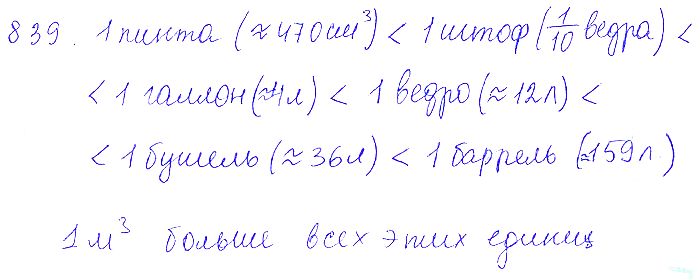 839. 1 пинта (≈470см³) < 1 штоф (1/10 ведра) <
< 1 галлон (≈4л) < 1 ведро (≈12л) <
< 1 бушель (≈36л) < 1 баррель (≈159л)
1 м³ больше всех этих единиц